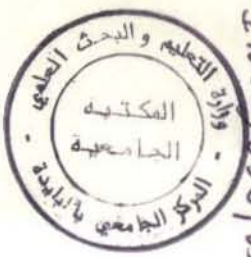 وزارة التعليم و البحث العلمي
المكتبه
الجامعية
المركز الجامعي بالبليدة